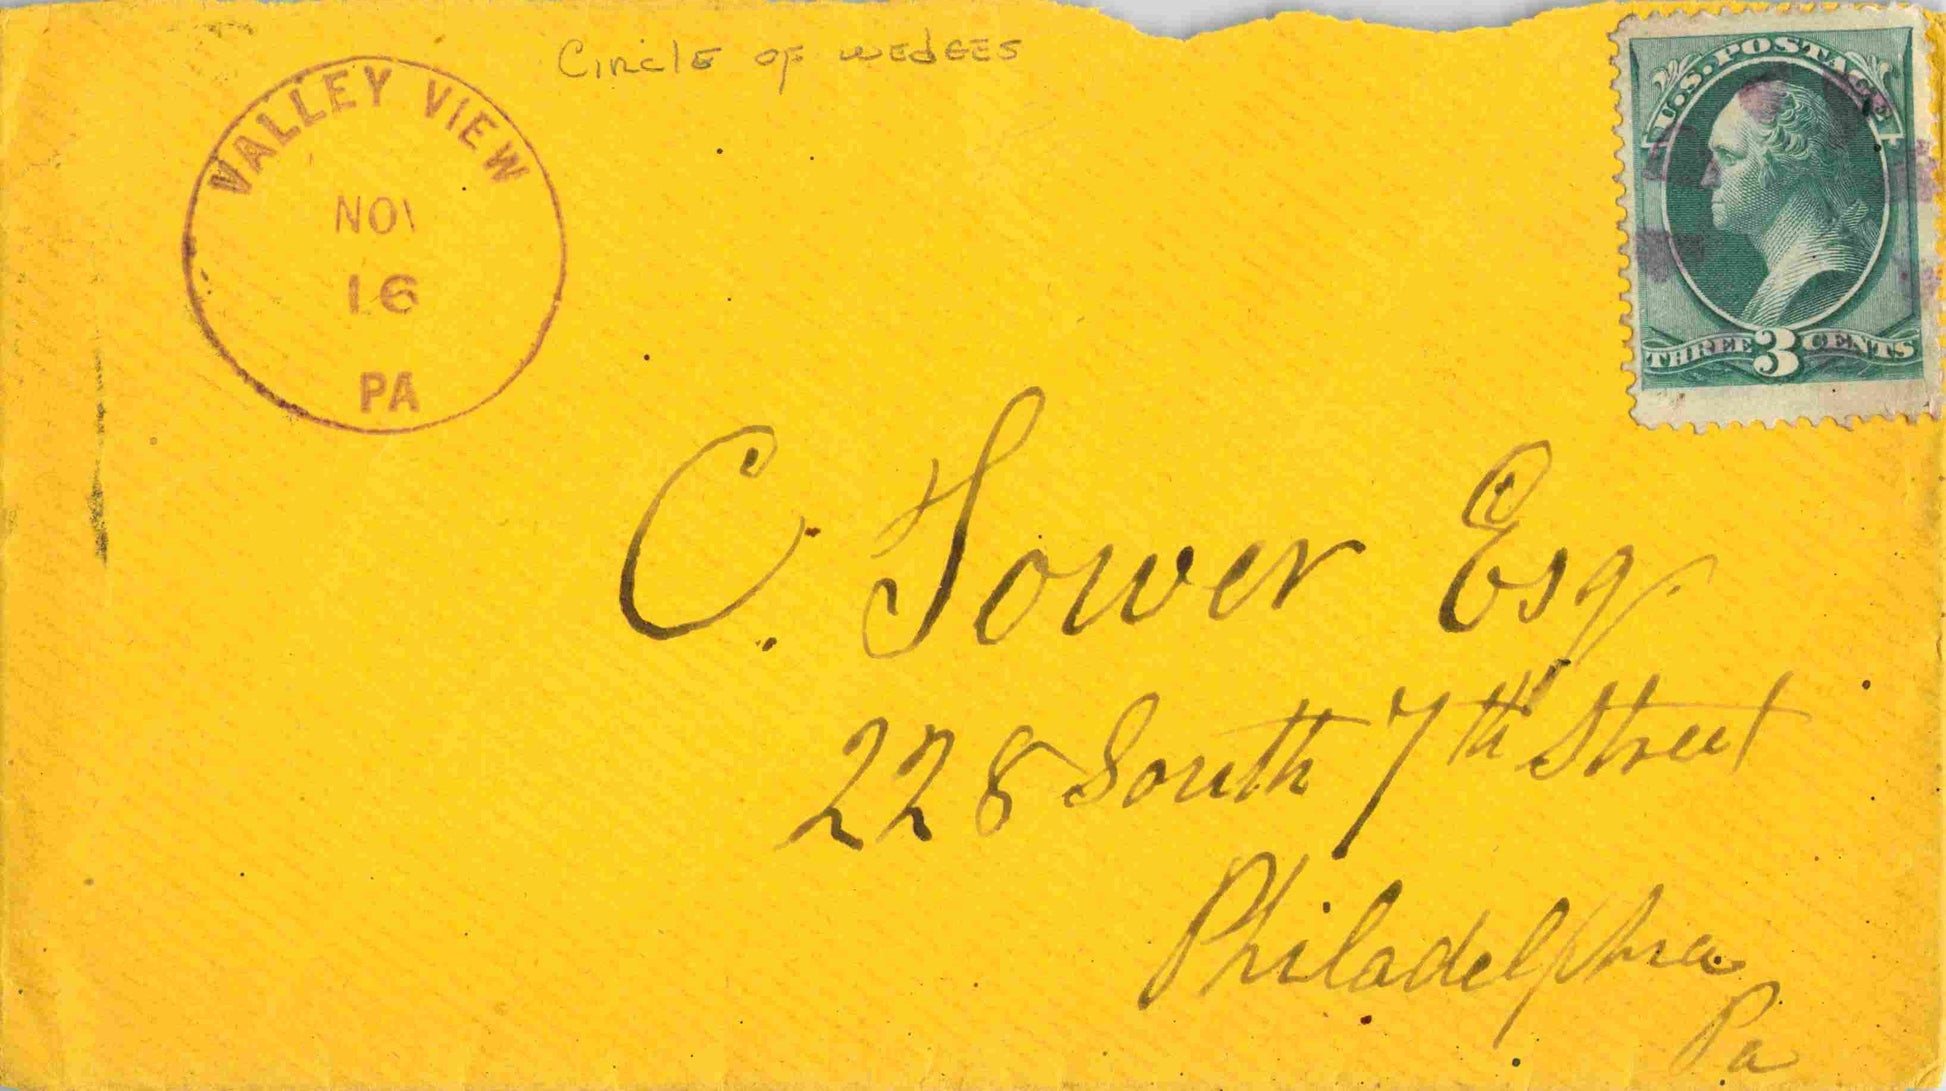 Circle of wedges
VALLEY VIEW
NOV
16
PA
U.S. POSTAGE
THREE 3 CENTS
C. Tower Esq.
228 South 7th Street
Philadelphia
Pa